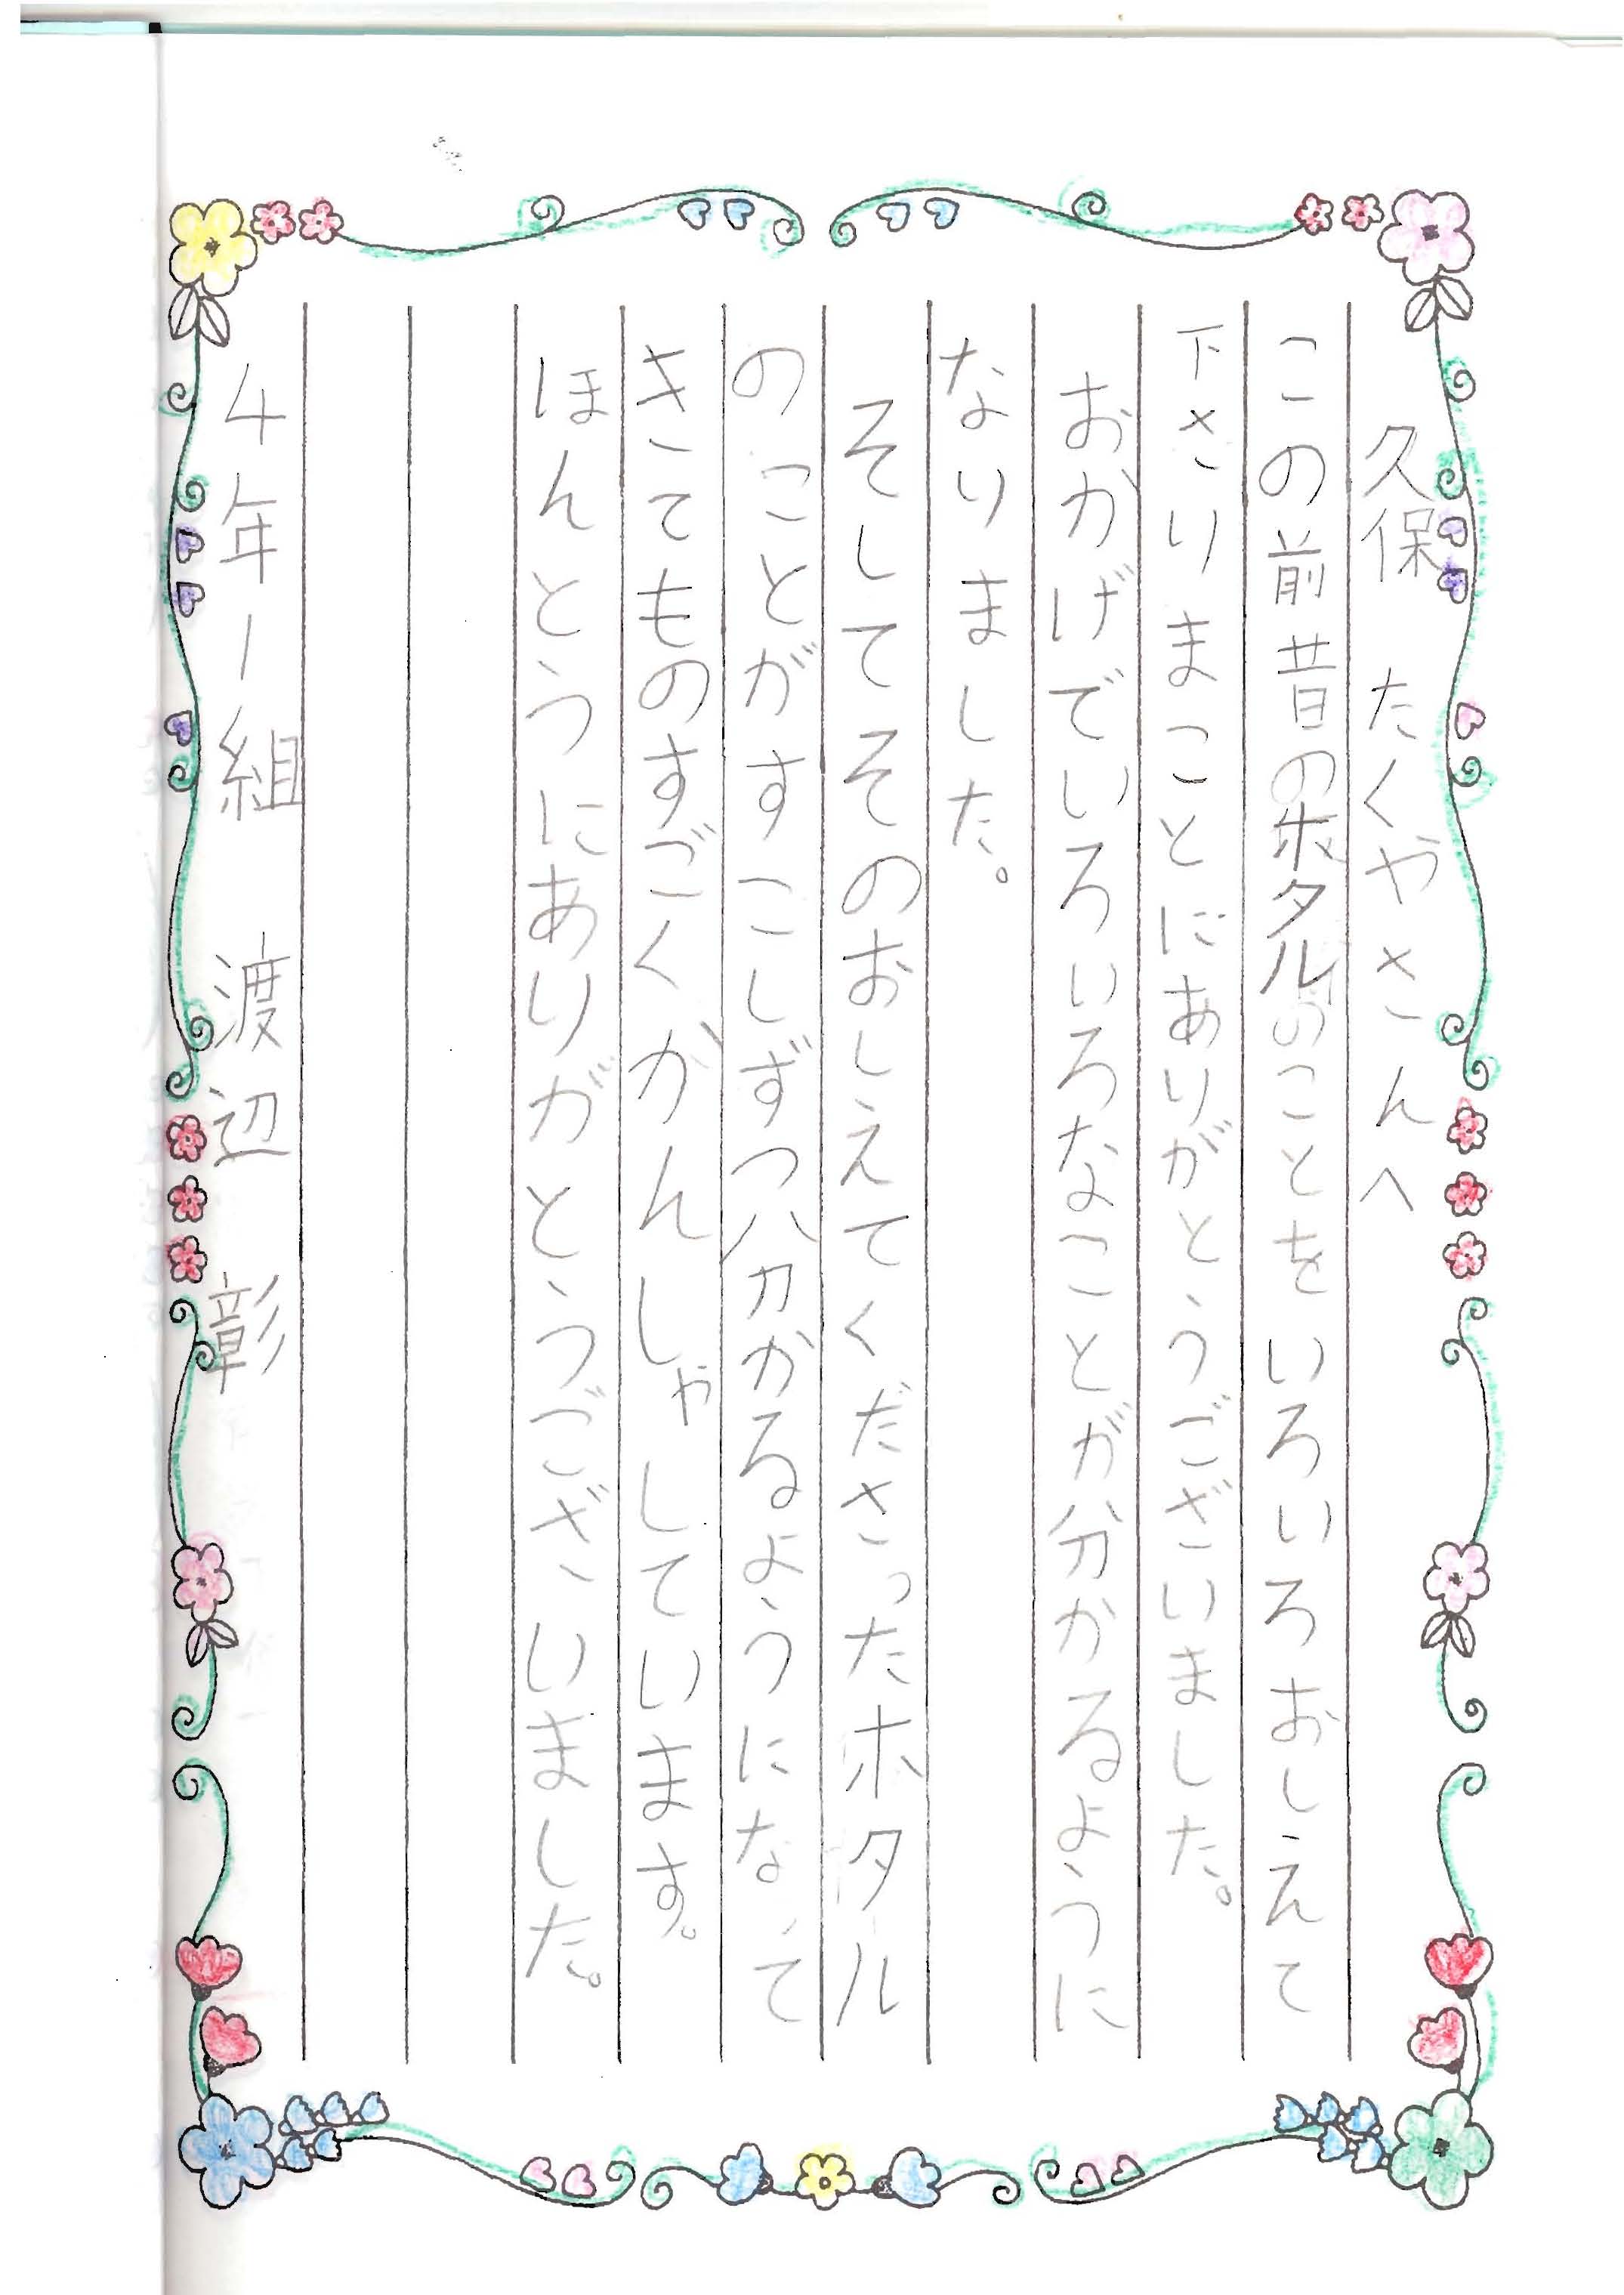 久保 たくやさんへ
この前昔のホタルのことをいろいろおしえて
下さりまことにありがとうございました。
おかげでいろいろなことが分かるように
なりました。
そしてそのおしえてくださったホタル
のことがすこしずつ分かるようになって
きてものすごくかんしゃしています。
ほんとうにありがとうございました。
4年1組 渡辺 彰